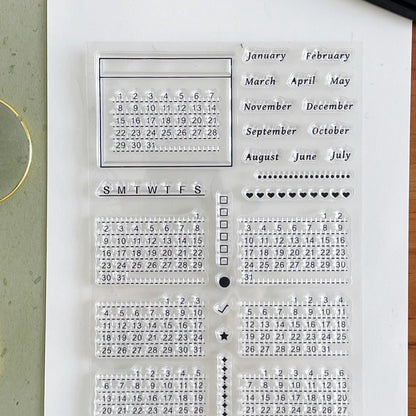 January February
March April May
November December
September October
August June July
1 2 3 4 5 6 7
8 9 10 11 12 13 14
15 16 17 18 19 20 21
22 23 24 25 26 27 28
29 30 31
S M T W T F S
1
2 3 4 5 6 7 8
9 10 11 12 13 14 15
16 17 18 19 20 21 22
23 24 25 26 27 28 29
30 31
1 2
3 4 5 6 7 8 9
10 11 12 13 14 15 16
17 18 19 20 21 22 23
24 25 26 27 28 29 30
31
1 2 3
4 5 6 7 8 9 10
11 12 13 14 15 16 17
18 19 20 21 22 23 24
25 26 27 28 29 30 31
1 2 3 4
5 6 7 8 9 10 11
12 13 14 15 16 17 18
19 20 21 22 23 24 25
26 27 28 29 30 31
1 2 3 4 5
6 7 8 9 10 11 12
13 14 15 16 17 18 19
20 21 22 23 24 25 26
1 2 3 4 5 6
7 8 9 10 11 12 13
14 15 16 17 18 19 20
21 22 23 24 25 26 27